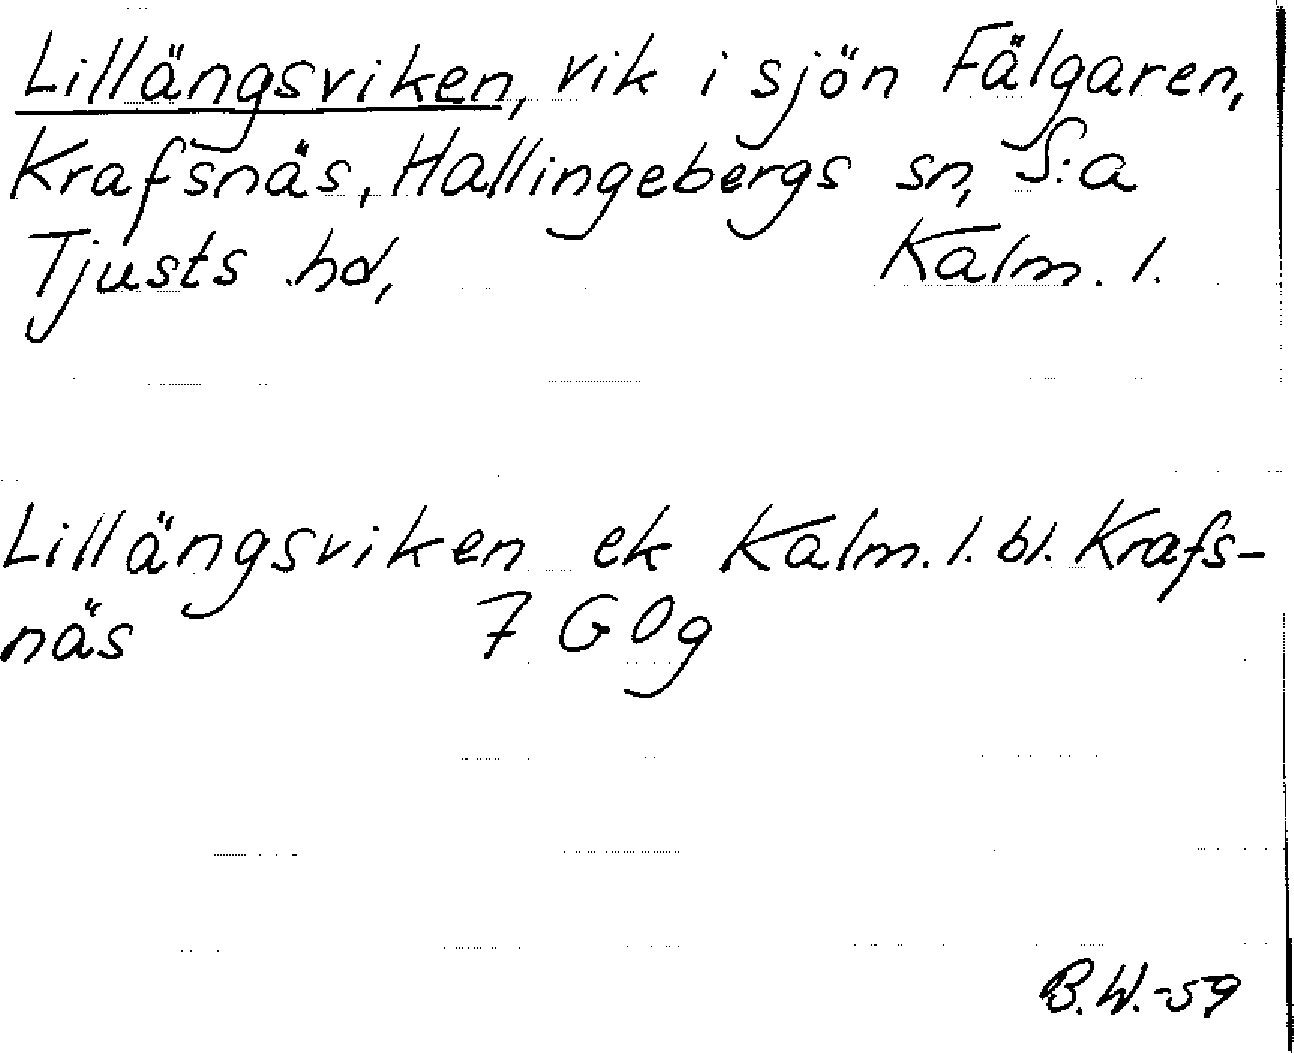 Lillängsviken, vik i sjön Fälgaren,
Krafsnäs, Hallingebergs sn, S:a
Tjusts hd, Kalm. l.
Lillängsviken ek Kalm. l. bl. Krafs-
näs 7 G Og
B.W.-59